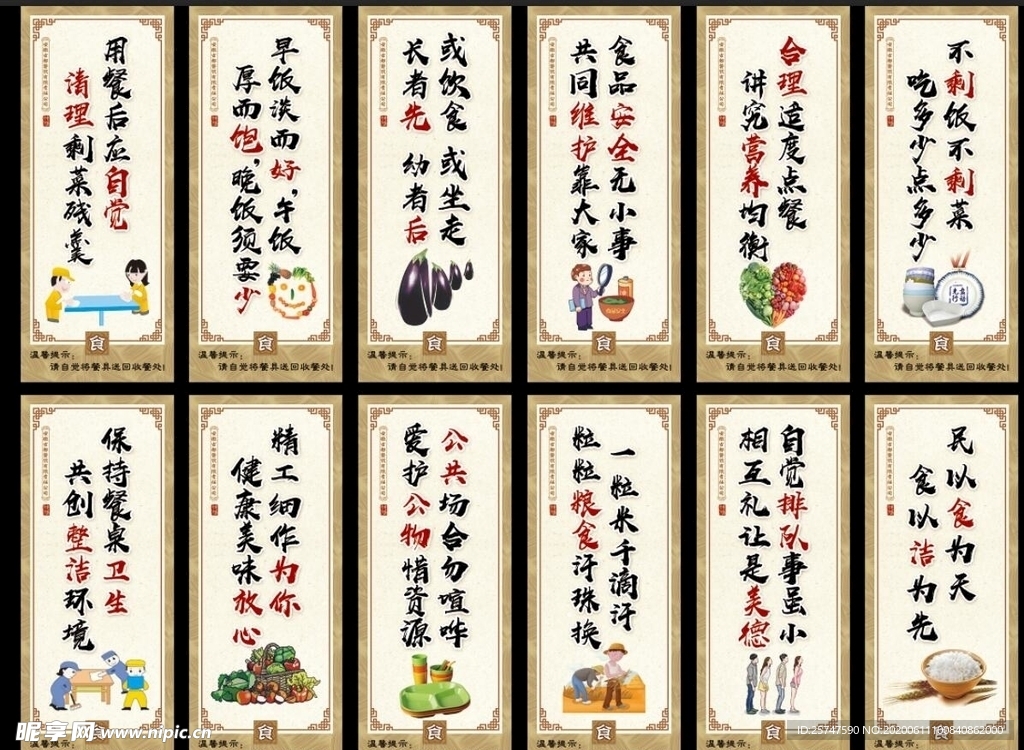 用餐后应自觉
清理剩菜残羹
食
温馨提示:
请自觉将餐具送回收餐处
早饭淡而好,午饭
厚而饱,晚饭须要少
食
温馨提示:
请自觉将餐具送回收餐处
或饮食 或坐走
长者先 幼者后
食
温馨提示:
请自觉将餐具送回收餐处
食品安全无小事
共同维护靠大家
食
温馨提示:
请自觉将餐具送回收餐处
合理适度点餐
讲究营养均衡
食
温馨提示:
请自觉将餐具送回收餐处
不剩饭不剩菜
吃多少点多少
食
温馨提示:
请自觉将餐具送回收餐处
保持餐桌卫生
共创整洁环境
精工细作为你
健康美味放心
食
公共场合勿喧哗
爱护公物惜资源
食
一粒米千滴汗
粒粒粮食汗珠换
食
自觉排队事虽小
相互礼让是美德
食
民以食为天
食以洁为先
昵享网 www.nipic.cn
ID:25747590 NO:20200611160840862000